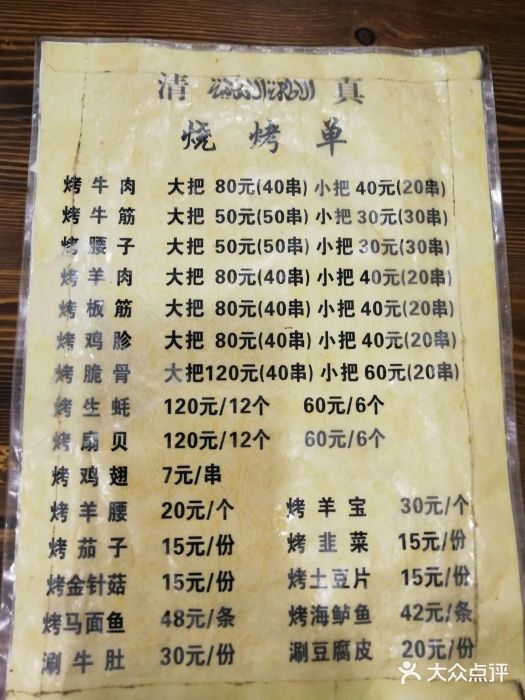 清 真
烧烤单
烤牛肉 大把 80元(40串) 小把 40元(20串)
烤牛筋 大把 50元(50串) 小把 30元(30串)
烤腰子 大把 50元(50串) 小把 30元(30串)
烤羊肉 大把 80元(40串) 小把 40元(20串)
烤板筋 大把 80元(40串) 小把 40元(20串)
烤鸡胗 大把 80元(40串) 小把 40元(20串)
烤脆骨 大把120元(40串) 小把 60元(20串)
烤生蚝 120元/12个 60元/6个
烤扇贝 120元/12个 60元/6个
烤鸡翅 7元/串
烤羊腰 20元/个 烤羊宝 30元/个
烤茄子 15元/份 烤韭菜 15元/份
烤金针菇 15元/份 烤土豆片 15元/份
烤马面鱼 48元/条 烤海鲈鱼 42元/条
涮牛肚 30元/份 涮豆腐皮 20元/份
大众点评